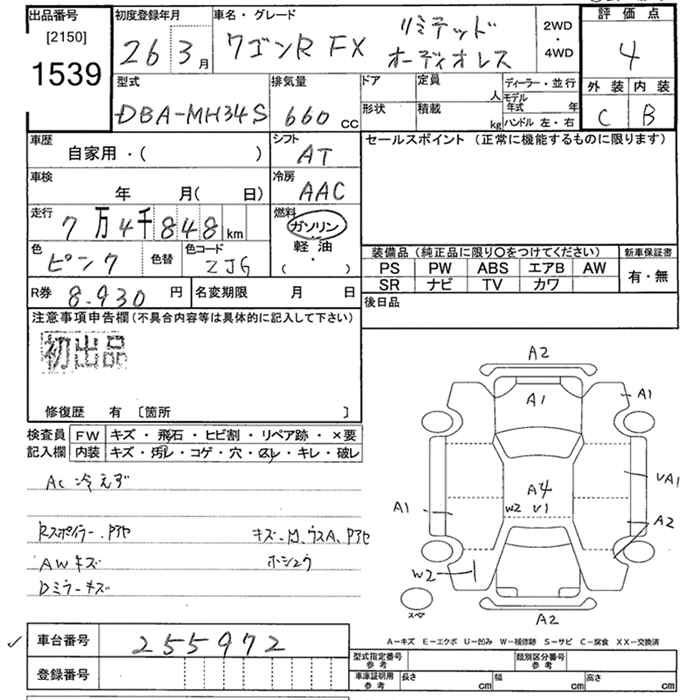 出品番号
[2150]
1539
初度登録年月
26 3月
車名・グレード
ワゴンR FX リミテッド
オーディオレス
2WD
・
4WD
評価点
4
外装 内装
C B
型式
DBA-MH34S
排気量
660 CC
ドア
定員
人
形状
積載
kg
ディーラー・並行
モデル年式 年
ハンドル 左・右
車歴
自家用・( )
シフト
AT
セールスポイント (正常に機能するものに限ります)
車検
年 月( 日)
冷房
AAC
走行
7万4千848km
燃料
ガソリン
軽油
( ・ )
色
ピンク
色替
色コード
ZJG
装備品 (純正品に限り○をつけてください)
新車保証書
PS PW ABS エアB AW
SR ナビ TV カワ
有・無
R券
8.930 円
名変期限 月 日
後日品
注意事項申告欄 (不具合内容等は具体的に記入して下さい)
初出品
修復歴 有 [箇所 ]
検査員
記入欄
FW キズ・飛石・ヒビ割・リペア跡・×要
内装 キズ・汚レ・コゲ・穴・スレ・キレ・破レ
AC 冷えず
Rスポイラー、Pアヤ
AWキズ
Dミラーキズ
ホシュウ
A2
A1
A1
UA1
A4
W2 U1
A1
A2
W2
スペア
A2
A－キズ E－エクボ U－凹み W－補修跡 S－サビ C－腐食 XX－交換済
車台番号
255972
登録番号
型式指定番号
参考
類別区分番号
参考
車庫証明用
参考
長さ cm
幅 cm
高さ cm